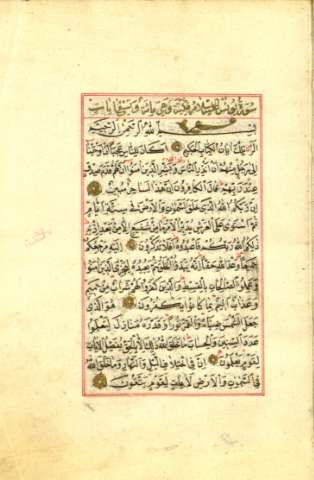 سورة يونس عليه السلام مكية وهي مائة وتسع آيات
بسم الله الرحمن الرحيم
الر تلك آيات الكتاب الحكيم أكان للناس عجبا أن أوحينا
إلى رجل منهم أن أنذر الناس وبشر الذين آمنوا أن لهم قدم صدق
عند ربهم قال الكافرون إن هذا لساحر مبين
إن ربكم الله الذي خلق السموات والأرض في ستة أيام
ثم استوى على العرش يدبر الأمر ما من شفيع إلا من بعد إذنه
ذلكم الله ربكم فاعبدوه أفلا تذكرون إليه مرجعكم
جميعا وعد الله حقا إنه يبدؤا الخلق ثم يعيده ليجزي الذين آمنوا
وعملوا الصالحات بالقسط والذين كفروا لهم شراب من حميم
وعذاب أليم بما كانوا يكفرون هو الذي
جعل الشمس ضياء والقمر نورا وقدره منازل لتعلموا
عدد السنين والحساب ما خلق الله ذلك إلا بالحق يفصل الآيات
لقوم يعلمون إن في اختلاف الليل والنهار وما خلق الله
في السموات والأرض لآيات لقوم يتقون